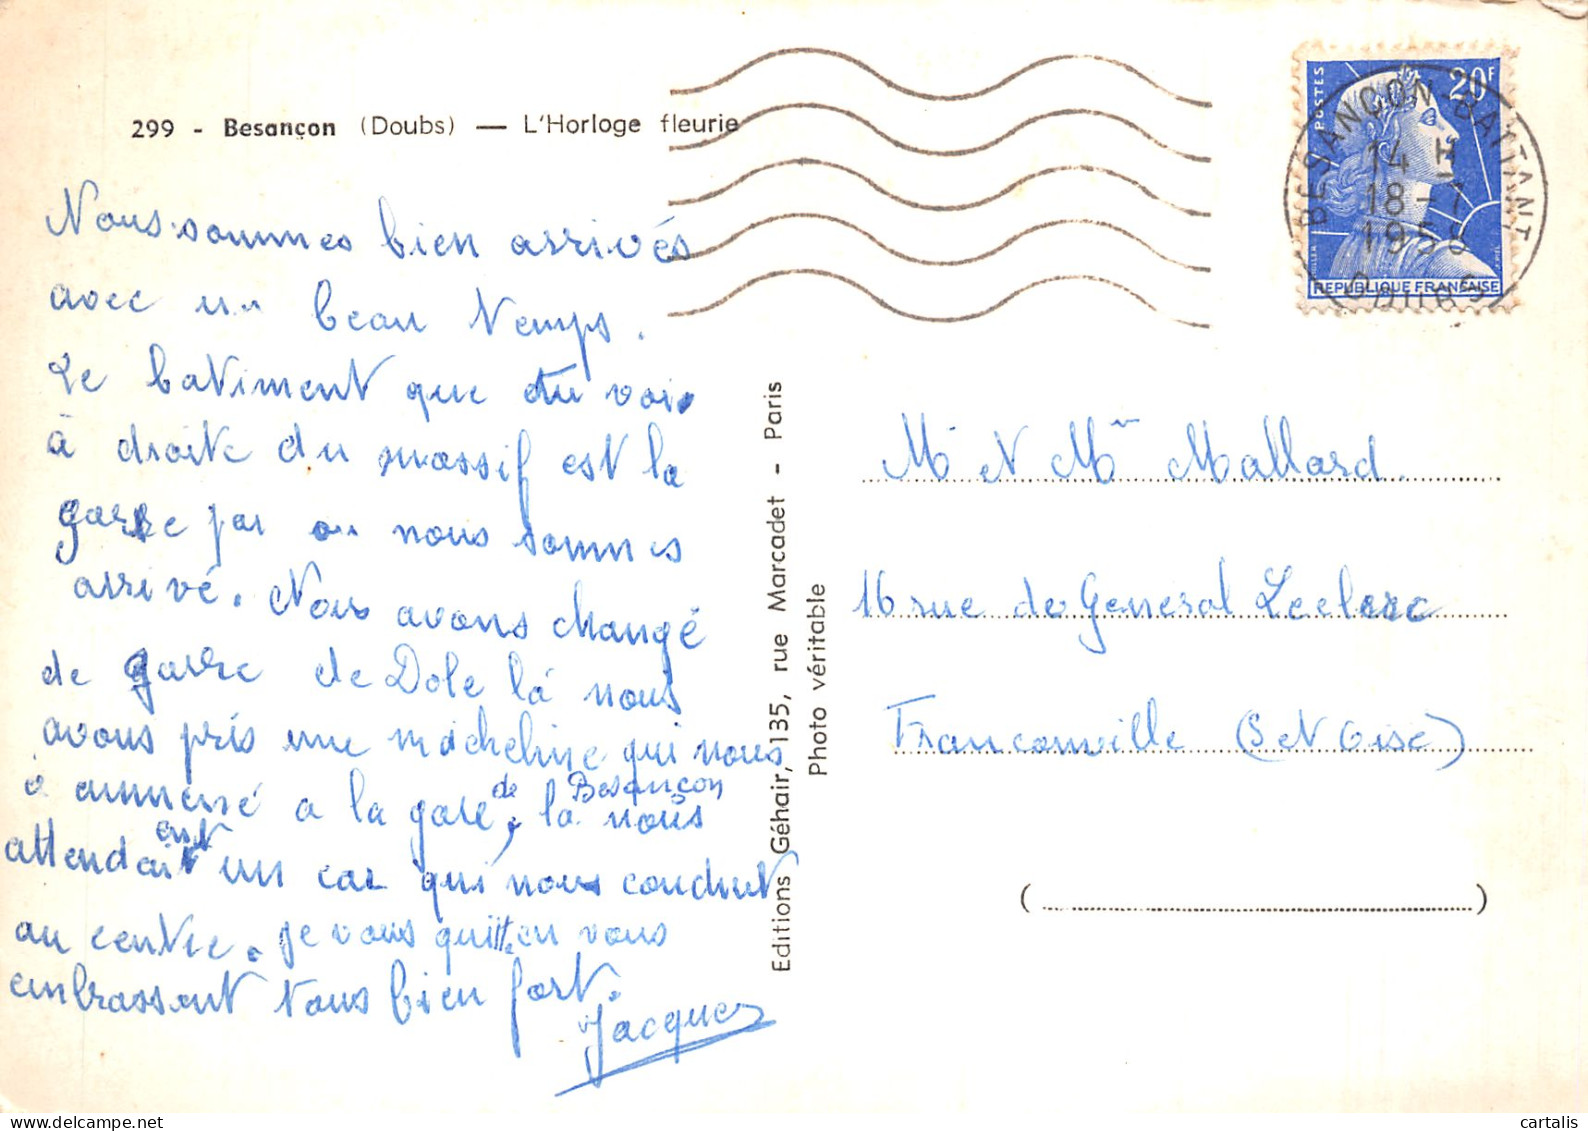 299 - Besançon (Doubs) — L'Horloge fleurie
Nous sommes bien arrivés
avec un beau temps.
Le batiment que tu vois
à droite du massif est la
garre par ou nous sommes
arrivé. Nous avons changé
de garre de Dole là nous
avons pris une micheline qui nous
à ammené a la gare de Besançon, la nous
attendaient un car qui nous conduit
au centre. Je vous quitte en vous
embrassant tous bien fort.
Jacques
Editions Géhair, 135, rue Marcadet - Paris
Photo véritable
POSTES
20F
REPUBLIQUE FRANÇAISE
BESANÇON-BATTANT
14 H
18-7
1958
DOUBS
Mr et Mme Mallard.
16 rue de General Leclerc
Franconville (S et Oise)
(                    )
cartalis